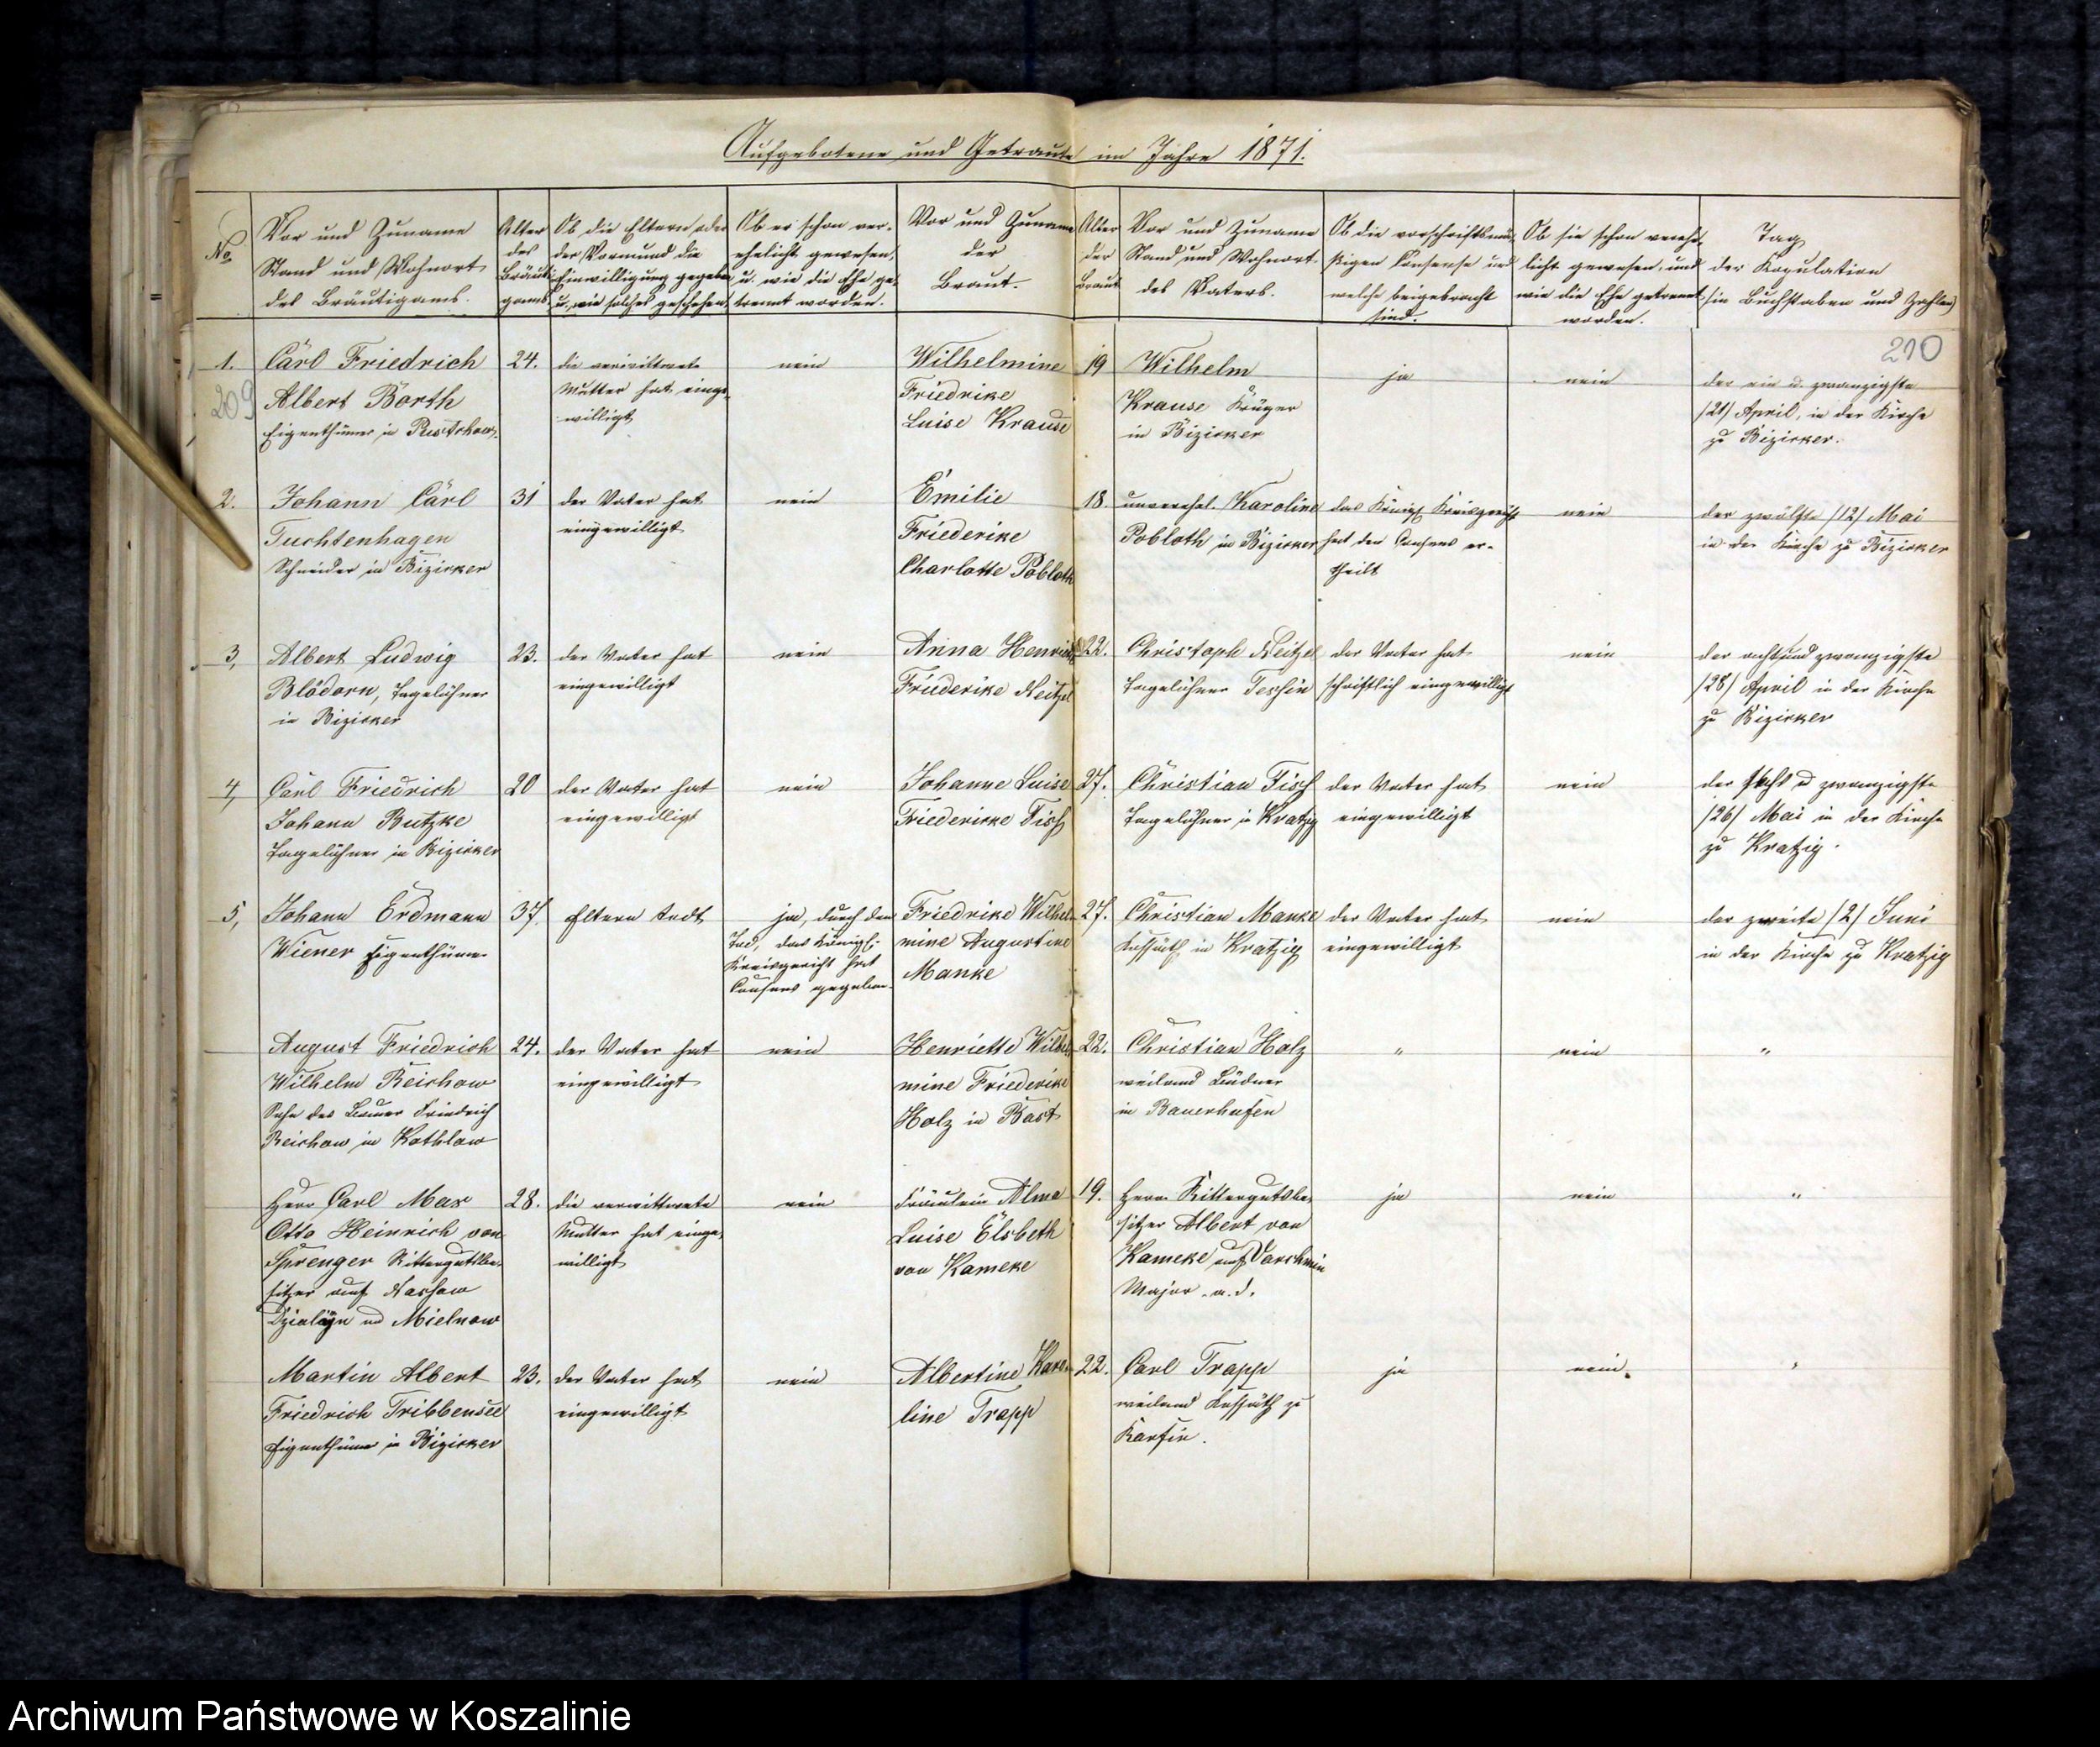 Aufgebotene und Getraute im Jahre 1871.
No
Vor und Zuname
Stand und Wohnort
des Bräutigams.
Alter
des
Bräuti-
gams
Ob die Eltern oder
der Vormund die
Einwilligung gegeben
u. wie solches geschehen.
Ob er schon ver-
ehelicht gewesen,
u. wie die Ehe ge-
trennt worden.
Vor und Zuname
der
Braut.
Alter
der
Braut
Vor und Zuname
Stand und Wohnort
des Vaters.
Ob die vorschriftsmä-
ßigen Consense und
welche beigebracht
sind.
Ob sie schon verehe-
licht gewesen, und
wie die Ehe getrennt
worden.
Tag
der Kopulation
(in Buchstaben und Zahlen)
209
210
1.
Carl Friedrich
Albert Barth
Eigenthümer in Pustchow.
24.
die verwittwete
Mutter hat einge-
willigt
nein
Wilhelmine
Friedrike
Luise Krause
19
Wilhelm
Krause Krüger
in Biziker
ja
nein
der ein u. zwanzigste
/21/ April, in der Kirche
zu Biziker.
2.
Johann Carl
Tuchtenhagen
Schneider in Biziker
31
der Vater hat
eingewilligt
nein
Emilie
Friederike
Charlotte Pobloth
18.
unverehel. Karoline
Pobloth in Biziker
das Königl. Kreisgericht
hat den Consens er-
theilt
nein
der zwölfte /12/ Mai
in der Kirche zu Biziker
3,
Albert Ludwig
Blödorn, Tagelöhner
in Biziker
23.
der Vater hat
eingewilligt
nein
Anna
Friederike Neitzel
22.
Christoph Neitzel
Tagelöhner Teshin
der Vater hat
schriftlich eingewilligt
nein
der achtundzwanzigste
/28/ April in der Kirche
zu Biziker
4,
Carl Friedrich
Johann Butzke
Tagelöhner in Biziker
20
der Vater hat
eingewilligt
nein
Johanne Luise
Friedericke Fisch
27.
Christian Fisch
Tagelöhner in Kratzig
der Vater hat
eingewilligt
nein
der u zwanzigste
/26/ Mai in der Kirche
zu Kratzig.
5,
Johann Erdmann
Wiener Eigenthümer
37.
Eltern todt
ja, durch den
Tod, das Königl.
Kreisgericht hat
Consens gegeben.
Friedrike Wilhel-
mine Augustine
Manke
27.
Christian Manke
Kossäth in Kratzig
der Vater hat
eingewilligt
nein
der zweite /2/ Juni
in der Kirche zu Kratzig
August Friedrich
Wilhelm Reichow
Sohn des Bauer Friedrich
Reichow in Kothlow
24.
der Vater hat
eingewilligt
nein
Henriette Wilhel-
mine Friederike
Holz in Bast
22.
Christian Holz
weiland Büdner
in Bauerhufen
"
nein
"
Herr Carl Max
Otto Heinrich von
Sprenger Rittergutsbe-
sitzer auf Nassow
Dzialÿn und Mielnow
28.
die verwittwete
Mutter hat einge-
willigt
nein
Fräulein Alma
Luise Elsbeth
von Kameke
19.
Herr Rittergutsbe-
sitzer Albert von
Kameke auf Varchmin
Major a. d.
ja
nein
"
Martin Albert
Friedrich Tribbensee
Eigenthümer in Biziker
23.
der Vater hat
eingewilligt
nein
Albertine Karo-
line Trapp
22.
Carl Trapp
weiland Kossäth zu
Karfin.
ja
nein.
"
Archiwum Państwowe w Koszalinie